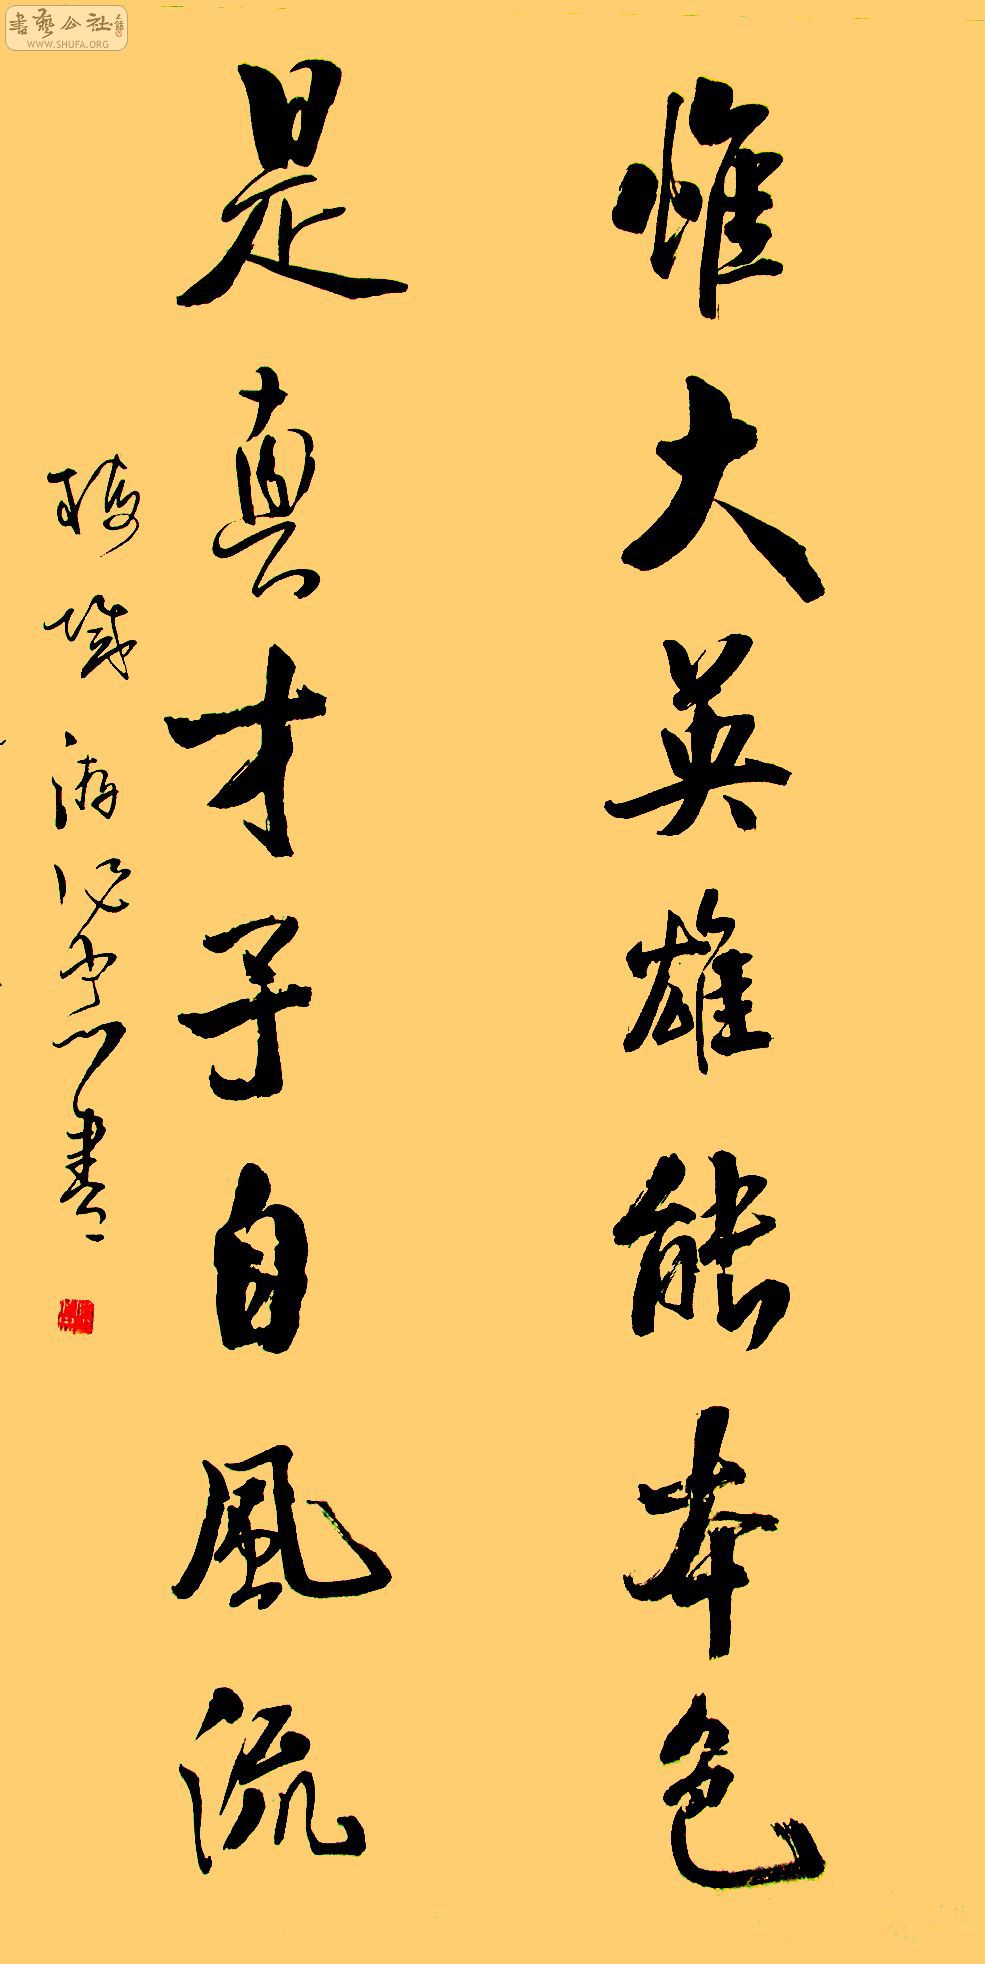 惟大英雄能本色
是真才子自風流
書
書藝公社
WWW.SHUFA.ORG